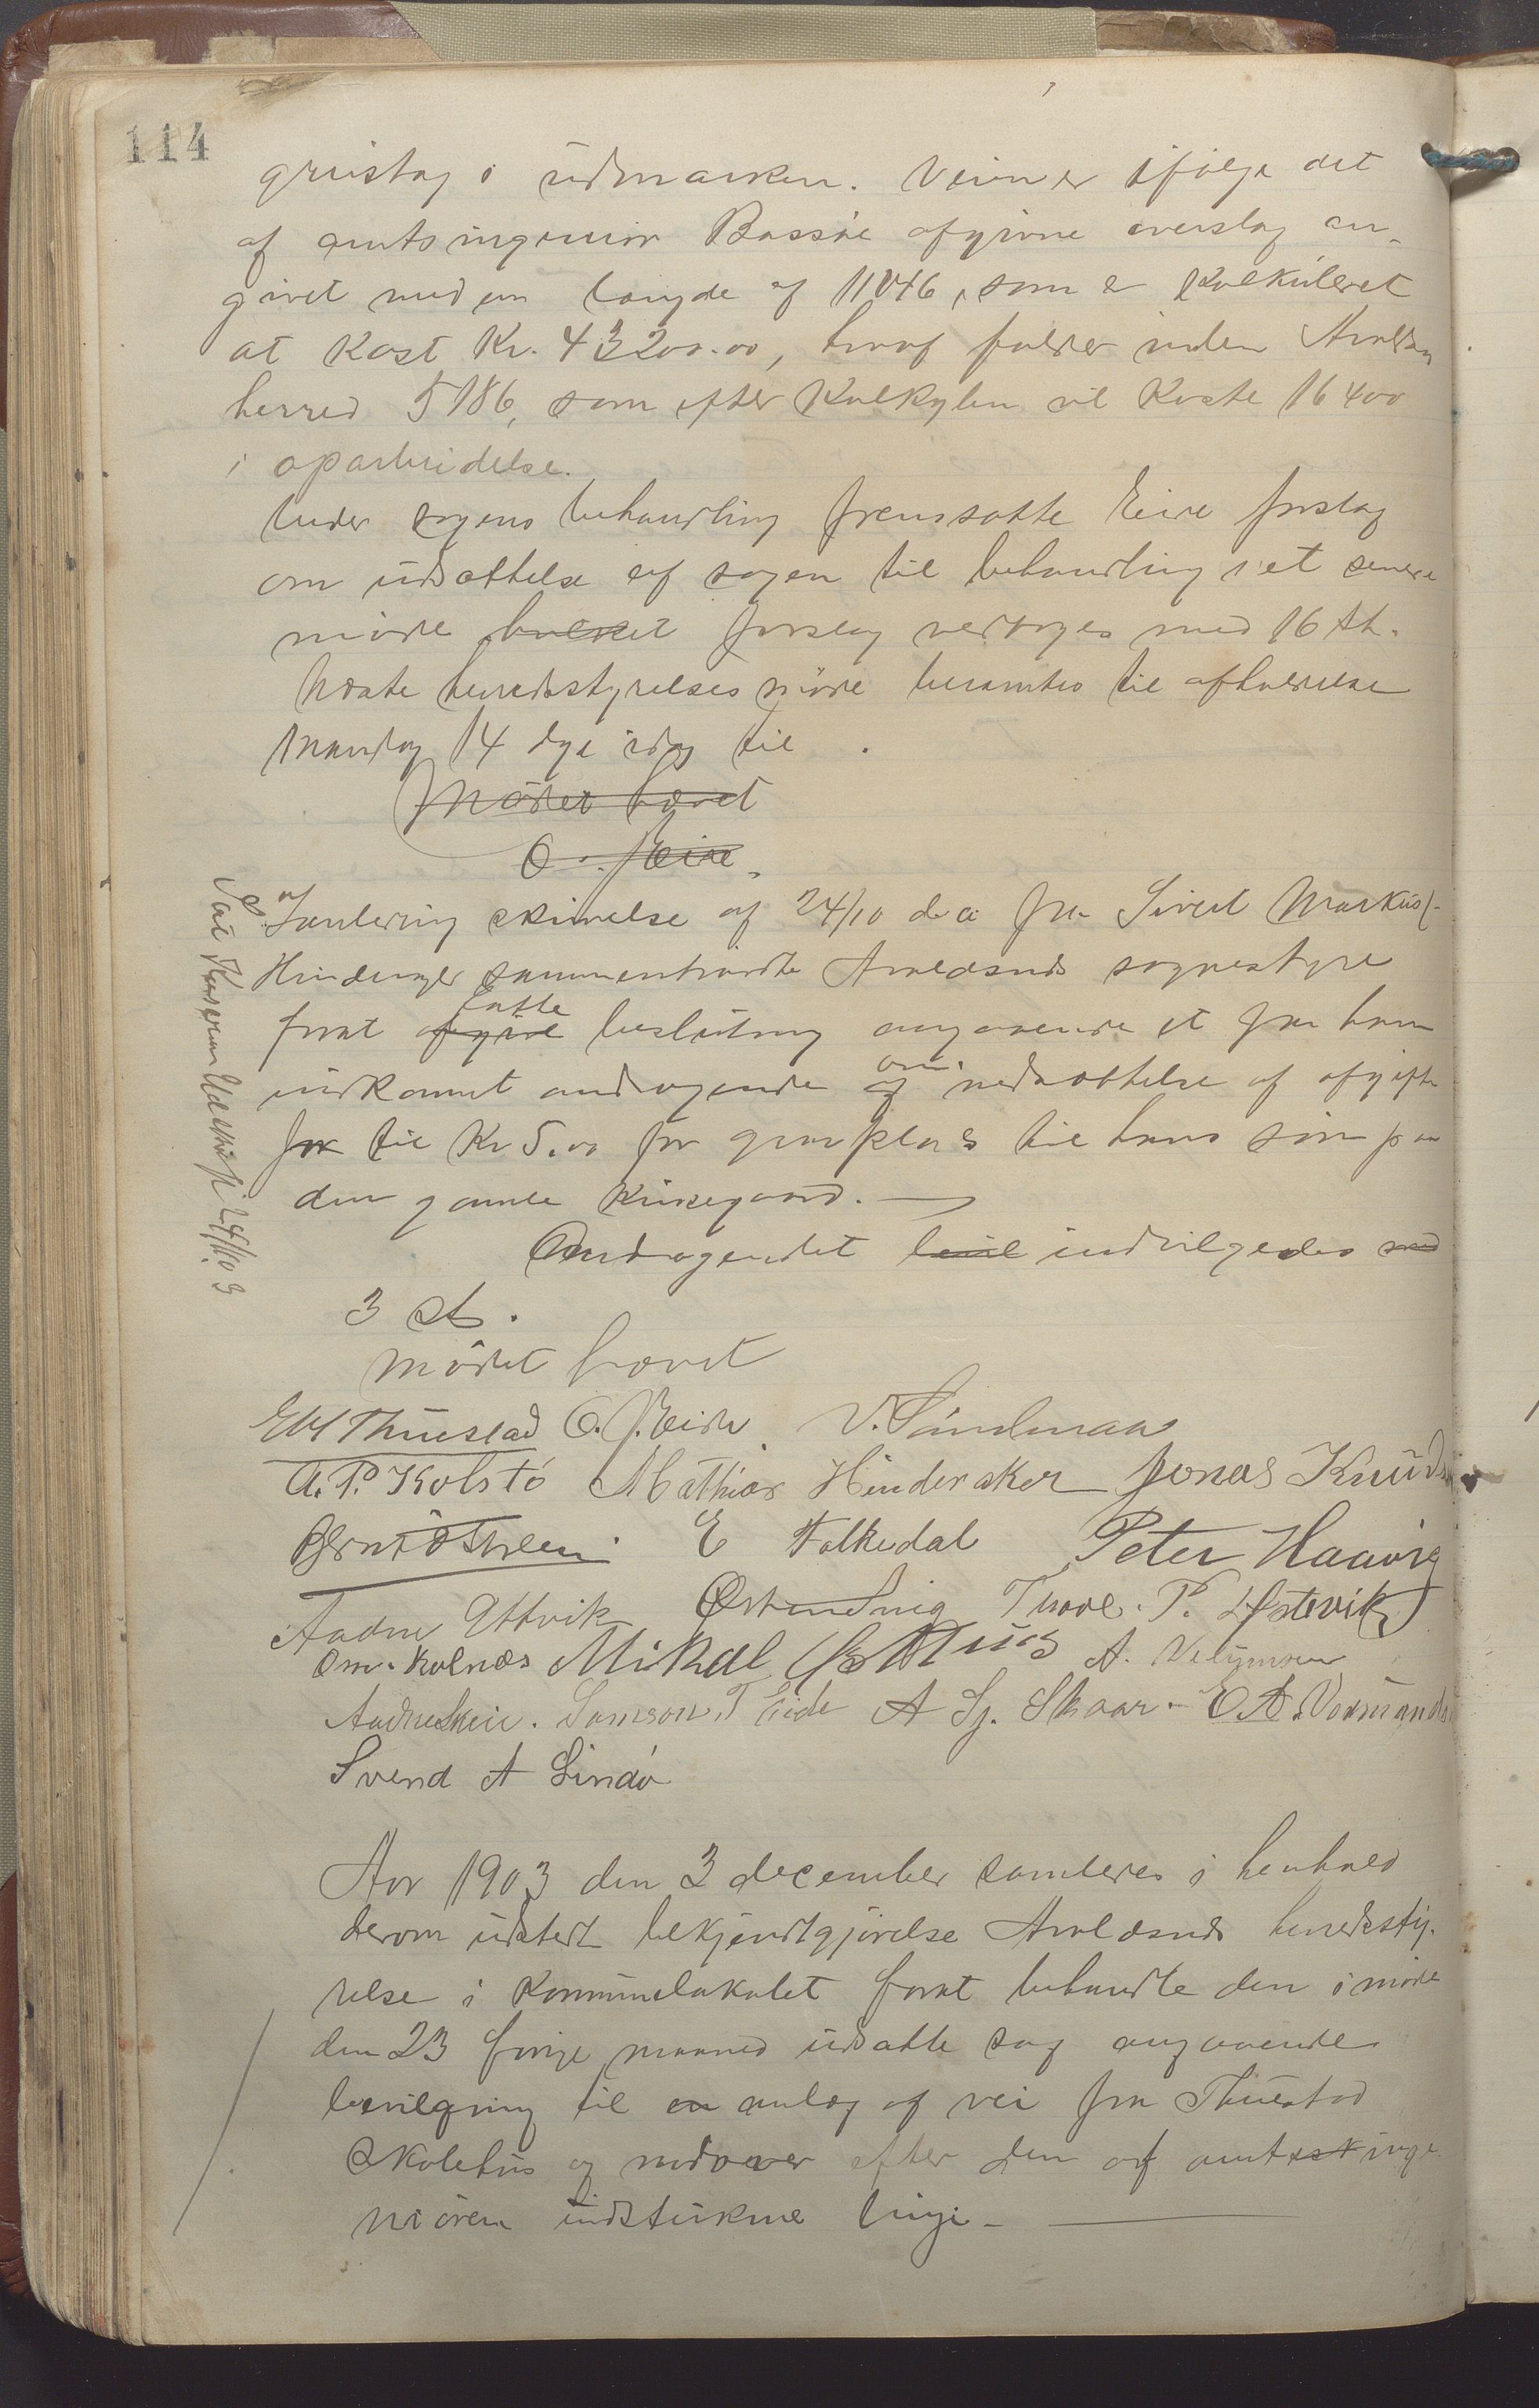 114
grustag i udmarken. Veien er ifølge det
af amtsingeniør Bassøe afgivne overslag an-
givet med en længde af 11046, som er kalkuleret
at kost Kr. 43200.00, hvoraf falder inden Avaldsnes
herred 5186, som efter kalkylen vil koste 16400
i oparbeidelse.
Under sagens behandling fremsatte Eide forslag
om udsættelse af sagen til behandling i et senere
møde hvilket forslag vedtoges med 16 st.
Næste herredsstyrelses møde berammes til afholdelse
mandag 14 dage idag til .
Mødet hævet
O. J. Eide.
I anledning skrivelse af 24/10 d.a. fra Sivert Markus
Hinderager sammentraadte Avaldsnes sognestyre
forat afgive fatte beslutning angaaende et fra ham
indkommet andragende af om nedsættelse af afgift
for til Kr 5.00 for gravplads til hans søn paa
den gamle kirkegaard.
Andragendet indvilgedes med
3 st.
mødet hævet
24/11 03
Thuestad O. J. Eide V. Sundmann
A. P. Kolstø Mathias Hinderaker Jonas Knuds
E Falkedal Peter Haavig
Aadne Uttvik Østensvig Thore P. Østevik
Om. Kolnes Mikal A.
Aadne Skeie. Samson T Eide A Sj. Skaar. O. A. Vormands
Svend A Lindø
Aar 1903 den 3 december samledes i henhold
derom udstedt bekjendtgjørelse Avaldsnes herredssty-
relse i Kommunelokalet forat behandle den i møde
den 23 forrige maaned udsatte sag angaaende
bevilgning til en anlæg af vei fra Thuestad
Skolehus og nedover efter den af amtsinge-
niøren udstukne linje.